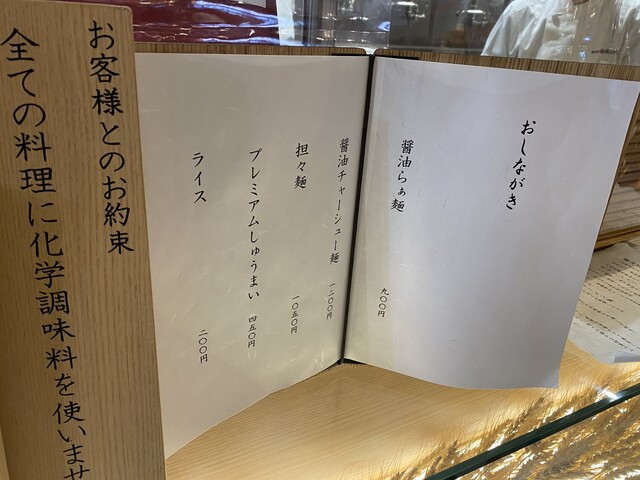 おしながき
醤油らぁ麺 九〇〇円
醤油チャーシュー麺 一二〇〇円
担々麺 一〇五〇円
プレミアムしゅうまい 四五〇円
ライス 二〇〇円
お客様とのお約束
全ての料理に化学調味料を使いませ